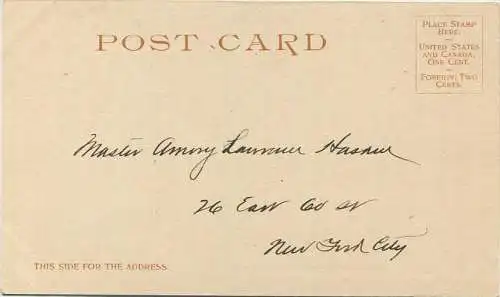 POST CARD
PLACE STAMP
HERE.
UNITED STATES
AND CANADA,
ONE CENT.
FOREIGN, TWO
CENTS.
Master Amory Lawrence Haskell
26 East 60 st
New York City
THIS SIDE FOR THE ADDRESS.